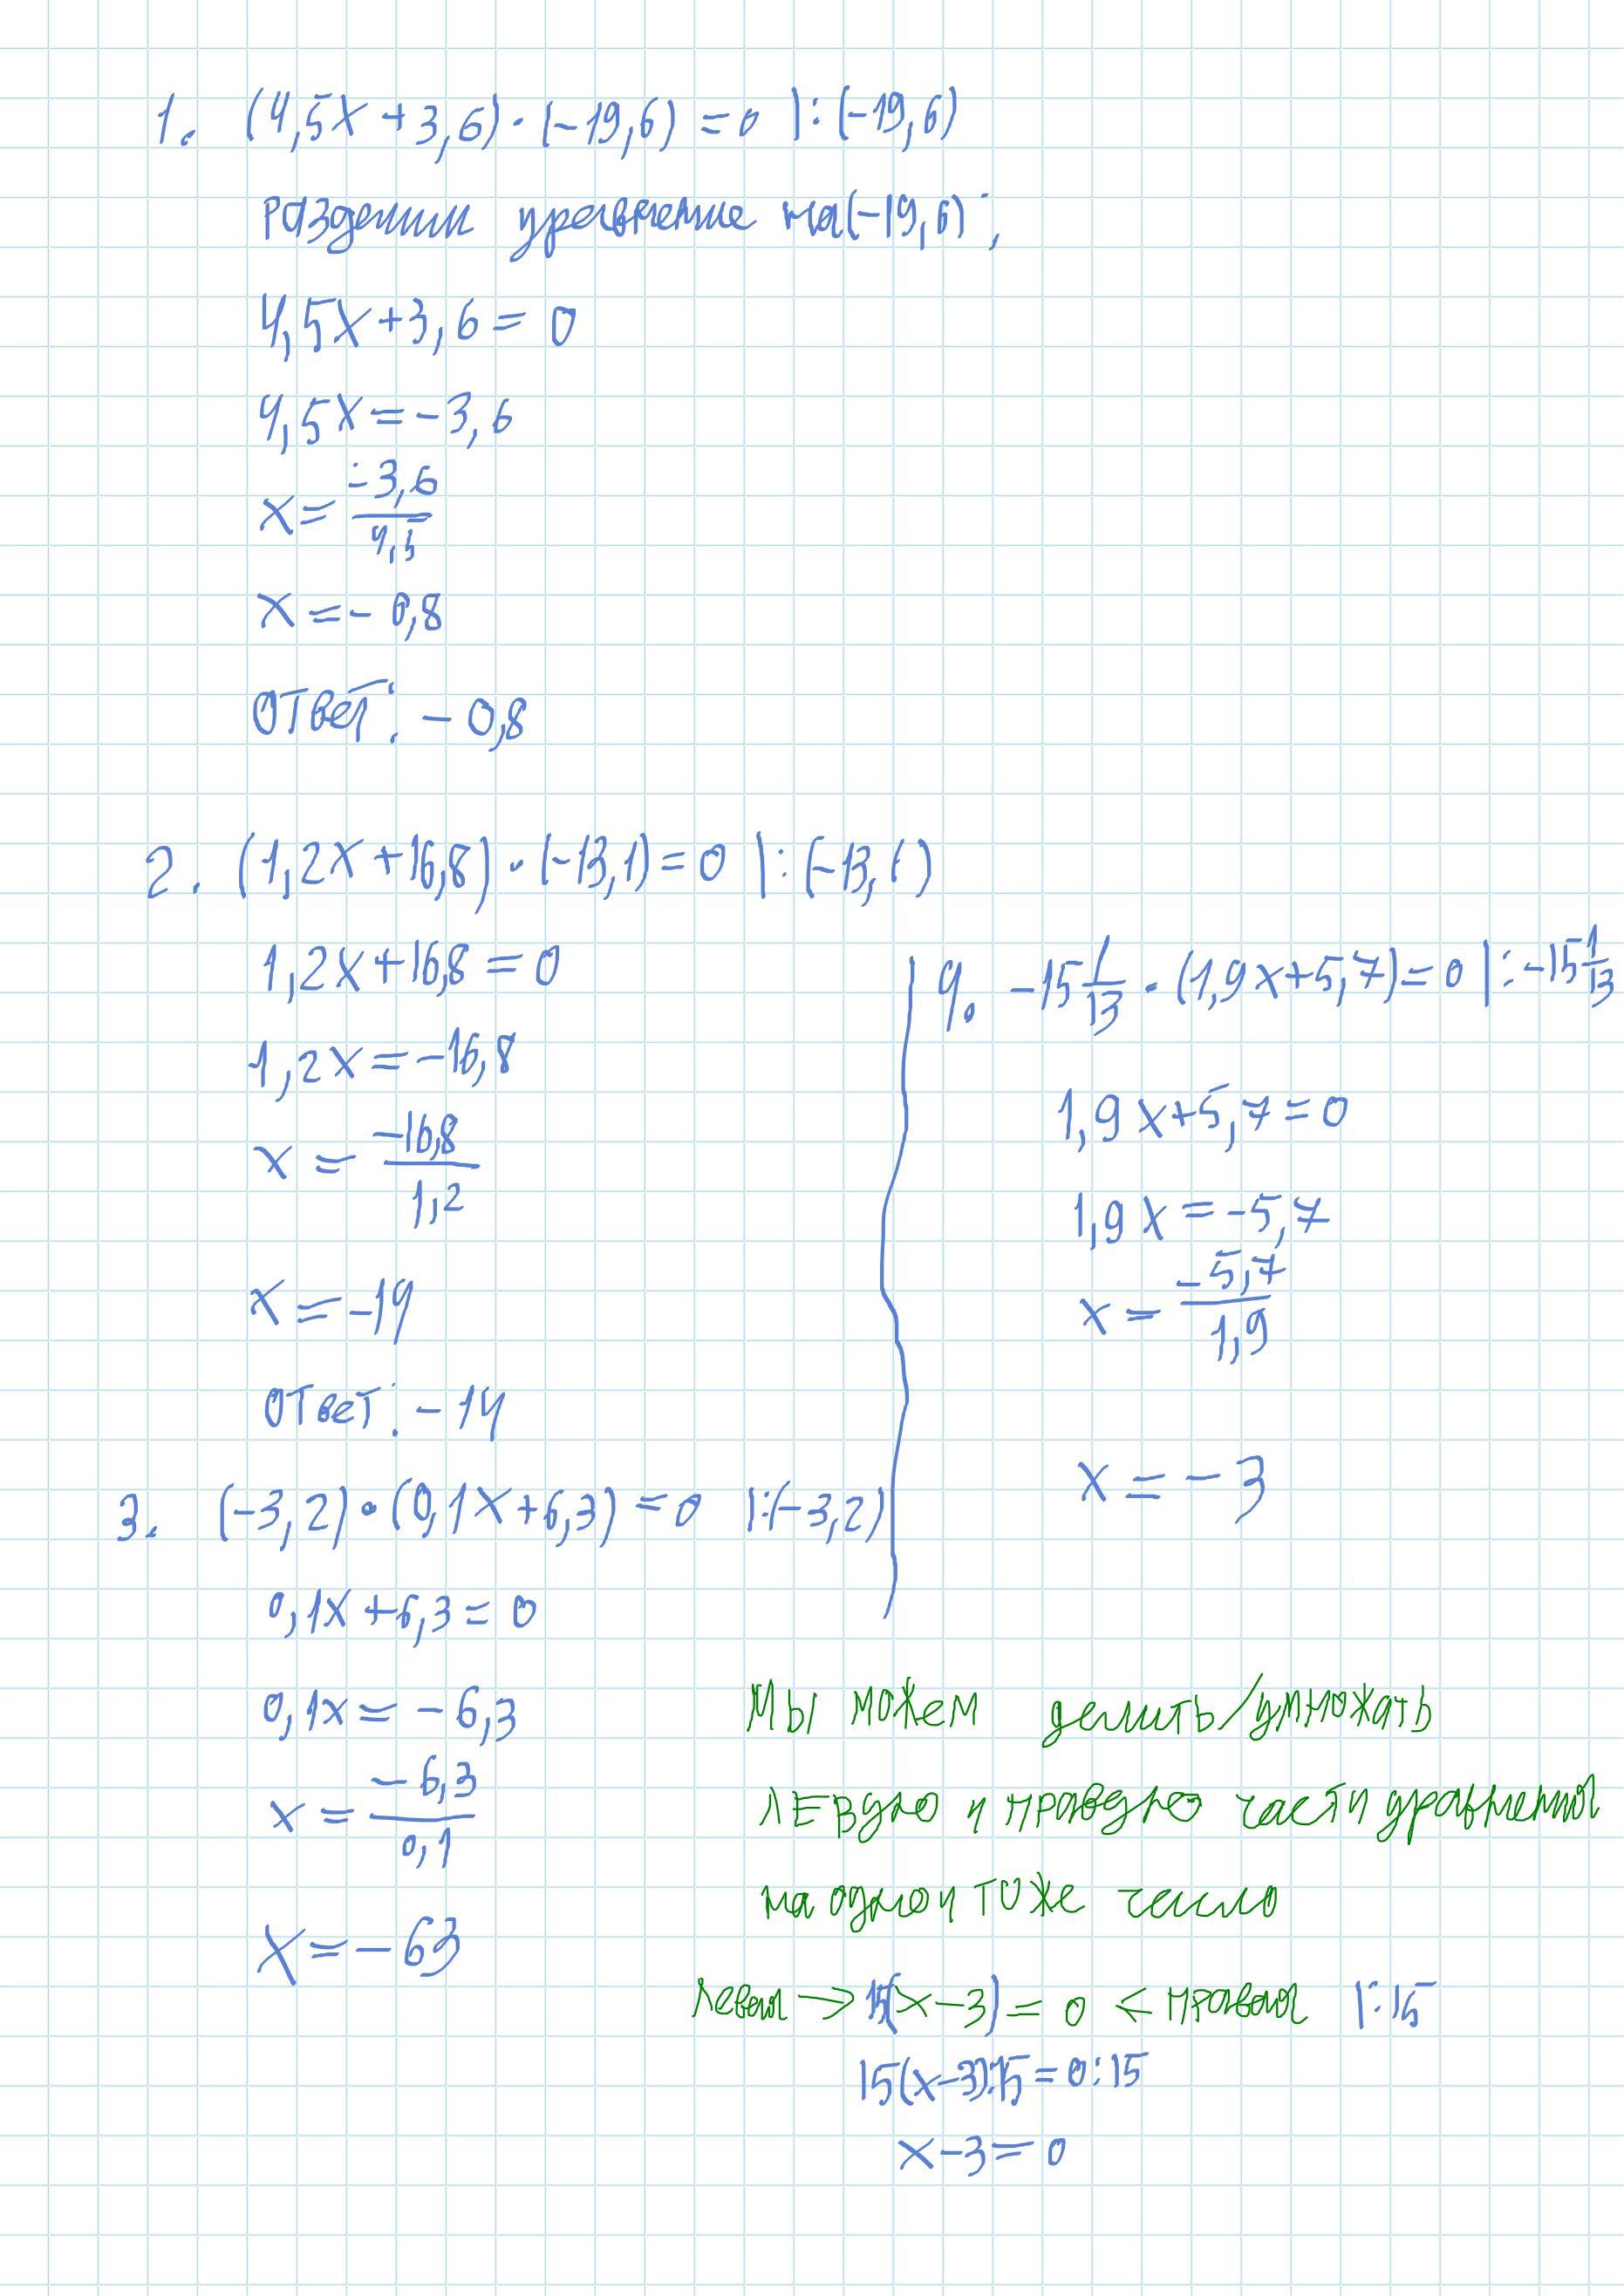 1. (4,5x + 3,6) · (-19,6) = 0 |: (-19,6)
Разделим уравнение на (-19,6):
4,5x + 3,6 = 0
4,5x = -3,6
x = -3,6/4,5
x = -0,8
Ответ: -0,8
2. (1,2x + 16,8) · (-13,1) = 0 |: (-13,1)
1,2x + 16,8 = 0
1,2x = -16,8
x = -16,8/1,2
x = -14
Ответ: -14
3. (-3,2) · (0,1x + 6,3) = 0 |: (-3,2)
0,1x + 6,3 = 0
0,1x = -6,3
x = -6,3/0,1
x = -63
4. -15 1/13 · (1,9x + 5,7) = 0 |: -15 1/13
1,9x + 5,7 = 0
1,9x = -5,7
x = -5,7/1,9
x = -3
Мы можем делить/умножать
левую и правую части уравнения
на одно и тоже число
левая → 15(x - 3) = 0 ← правая |: 15
15(x-3):15 = 0:15
x - 3 = 0